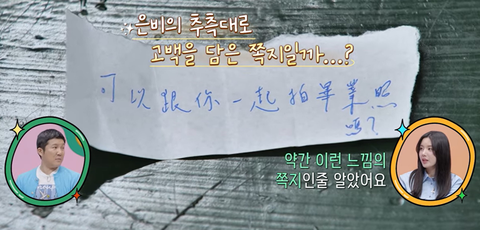 은비의 추측대로
고백을 담은 쪽지일까...?
可以跟你一起拍畢業照
嗎?
약간 이런 느낌의
쪽지인줄 알았어요